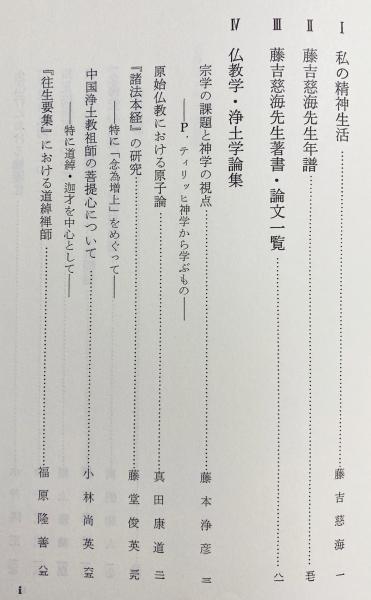 Ⅰ 私の精神生活……藤吉慈海 一
Ⅱ 藤吉慈海先生年譜……
Ⅲ 藤吉慈海先生著書・論文一覧……八一
Ⅳ 仏教学・浄土学論集
宗学の課題と神学の視点……藤本浄彦
――P．ティリッヒ神学から学ぶもの――
原始仏教における原子論……真田康道
『諸法本経』の研究……藤堂俊英
――特に「念為増上」をめぐって――
中国浄土教祖師の菩提心について……小林尚英 六五
――特に道綽・迦才を中心として――
『往生要集』における道綽禅師……福原隆善 八五
i